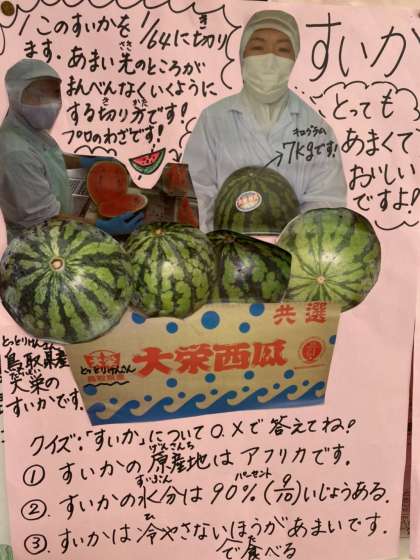 このすいかを 1/64に切り
ます。あまい先のところが
まんべんなくいくように
する切り方です!
プロのわざです!
すいか
とっても
あまくて
おいしい
ですよ!
キログラム
7kgです!
共選
大栄西瓜
とっとりけんさん
鳥取県産
だいえい
大栄の
すいかです。
クイズ:「すいか」について○.×で答えてね!
げんさんち
① すいかの原産地はアフリカです。
すいぶん パーセント
② すいかの水分は90%(9/10)いじょうある。
ひ
③ すいかは冷やさないほうがあまいです。
で食べる